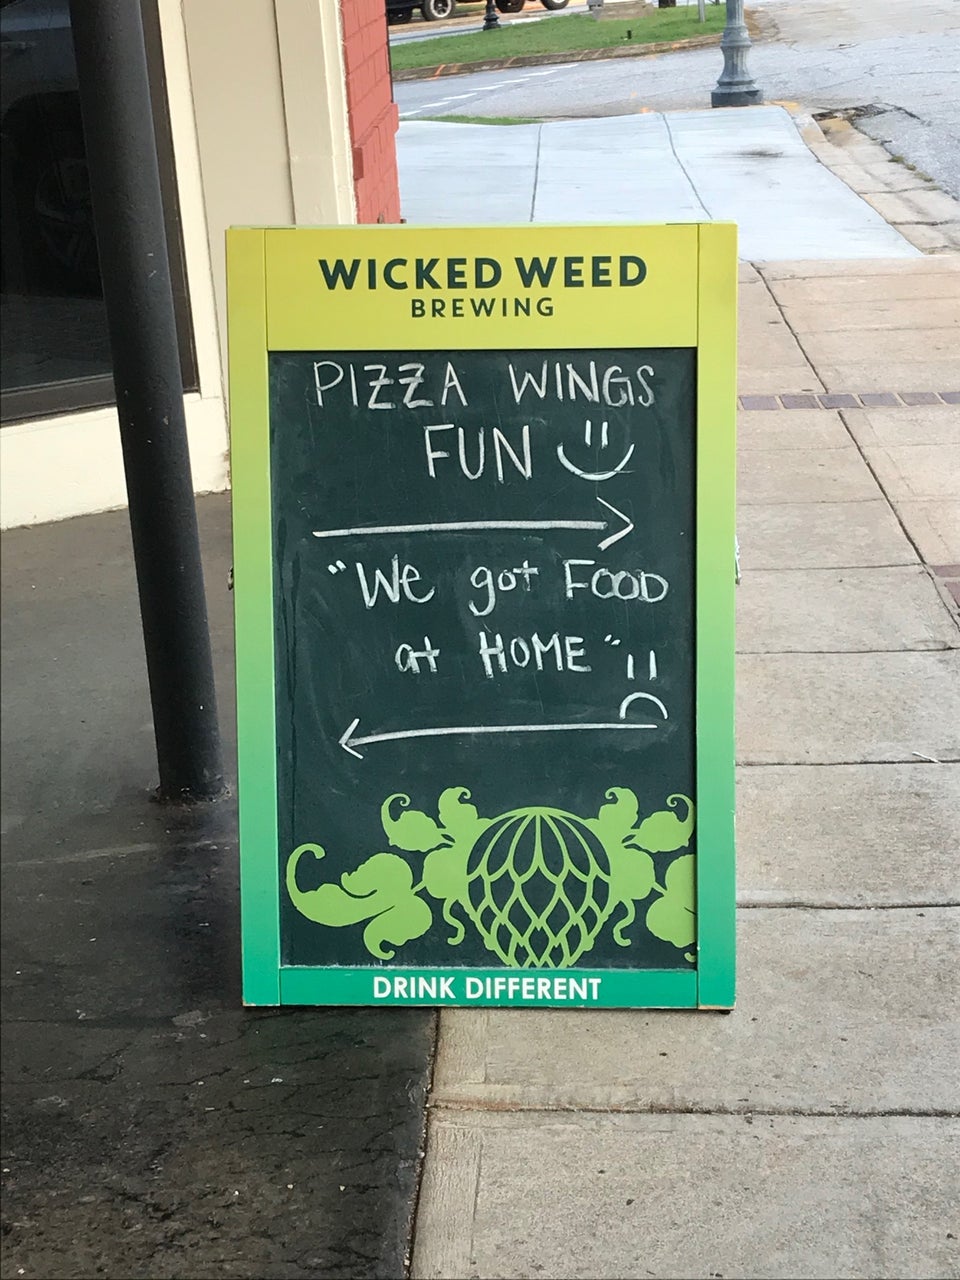 WICKED WEED
BREWING
PIZZA WINGS
FUN
"We got FOOD
at HOME"
DRINK DIFFERENT